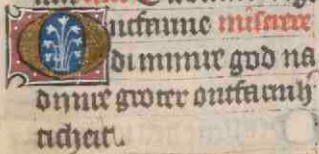 Ontfarme miserere
di mijnre god na
dijnre groter ontfarmh
ticheit.